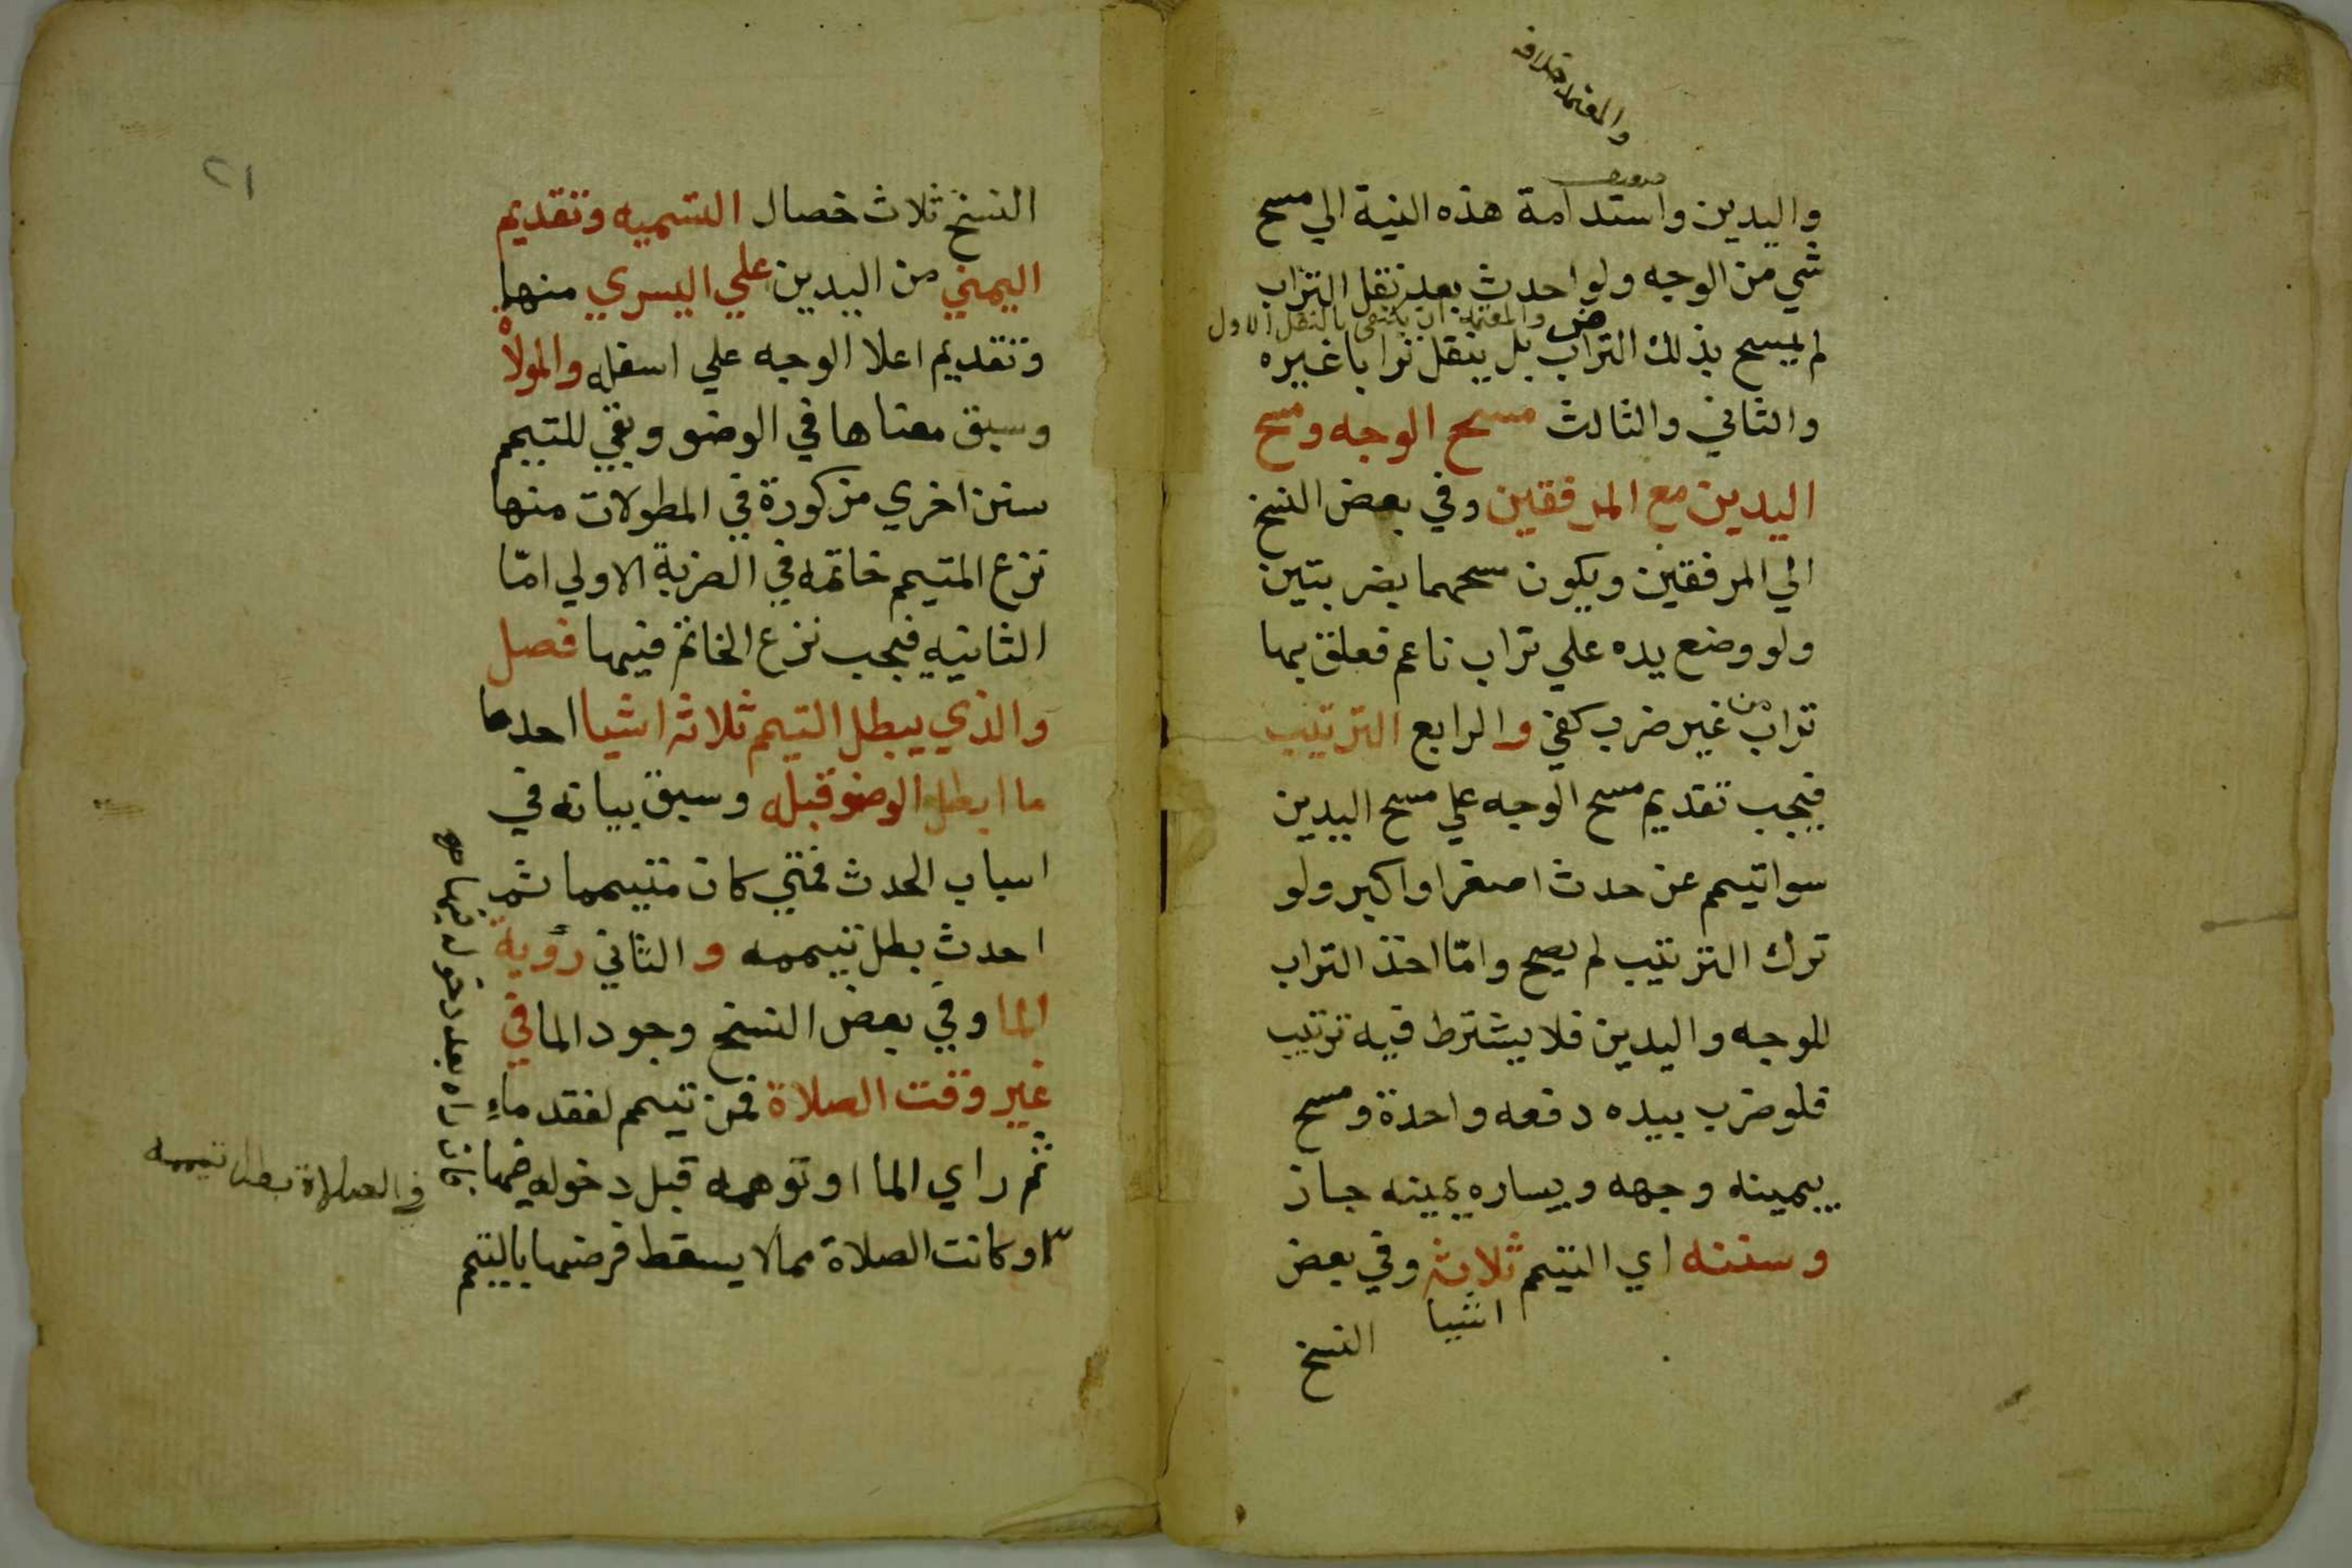 والمعتمد خلافه
واليدين واستدامة هذه النية الي مسح
شي من الوجه ولو احدث بعد نقل التراب
والمعتمد ان يكتفي بالنقل الاول
لم يمسح بذلك التراب بل ينقل ترابا غيره
والثاني والثالث مسح الوجه ومسح
اليدين مع المرفقين وفي بعض النسخ
الي المرفقين ويكون مسحهما بضربتين
ولو وضع يده علي تراب ناعم فعلق بها
تراب من غير ضرب كفي والرابع الترتيب
فيجب تقديم مسح الوجه علي مسح اليدين
سوا تيمم عن حدث اصغر او اكبر ولو
ترك الترتيب لم يصح وامّا اخذ التراب
للوجه واليدين فلا يشترط فيه ترتيب
فلو ضرب بيده دفعه واحدة ومسح
بيمينه وجهه وبيساره يمينه جاز
وسننه اي التيمم ثلاثة وفي بعض
اشيا
النسخ
٢١
النسخ ثلاث خصال التسميه وتقديم
اليمني من اليدين علي اليسري منها
وتقديم اعلا الوجه علي اسفله والمولاْ
وسبق معناها في الوضو وبقي للتيمم
سنن اخري مذكورة في المطولات منها
نزع المتيمم خاتمه في الضربة الاولي امّا
الثانيه فيجب نزع الخاتم فيها فصل
والذي يبطل التيمم ثلاثه اشيا احدها
ما ابطل الوضو قبله وسبق بيانه في
اسباب الحدث فمتي كان متيمما ثم
احدث بطل تيممه والثاني رؤية
الما وفي بعض النسخ وجود الما في
غير وقت الصلاة فمن تيمم لفقد ماءٍ
ثم راي الما او توهمه قبل دخوله فيها
فان راه بعد دخوله فيها
او كانت الصلاة مما لا يسقط فرضها بالتيمم
في الصلاة بطل تيممه